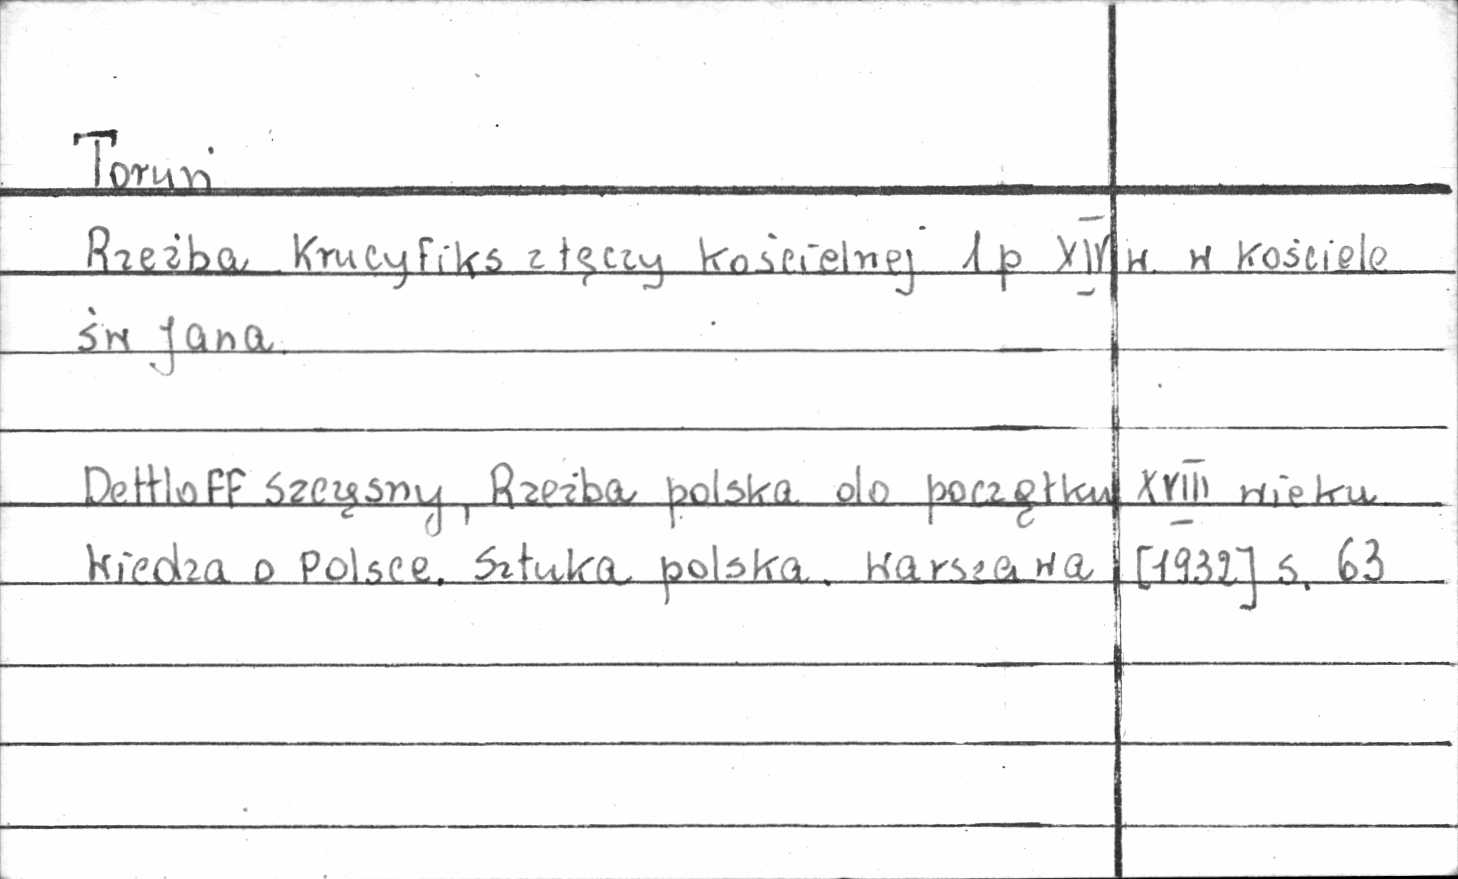 Toruń
Rzeźba Krucyfiks z tęczy kościelnej 1 p XIV w. w kościele
św Jana.
Dettloff Szczęsny, Rzeźba polska do początku XVIII wieku
Wiedza o Polsce. Sztuka polska. Warszawa [1932] s. 63